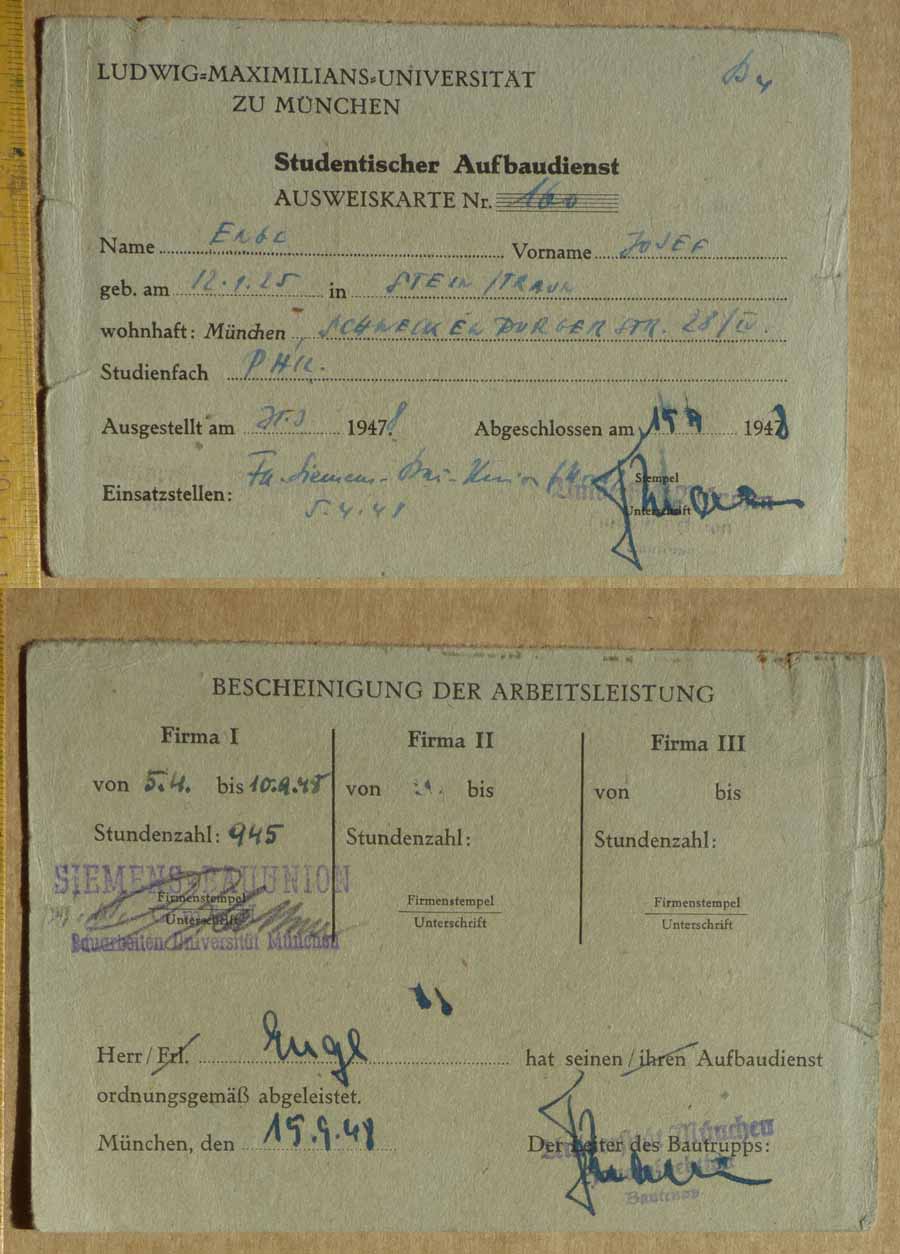 LUDWIG=MAXIMILIANS=UNIVERSITÄT
ZU MÜNCHEN
Studentischer Aufbaudienst
AUSWEISKARTE Nr. 160
Name Vorname JOSEF
geb. am 12.9.25 in STEIN/TRAUN
wohnhaft: München STR. 28/IV.
Studienfach PHIL.
Ausgestellt am 1948 Abgeschlossen am 15.9 1948
Einsatzstellen: Fa. Siemens-Bau-Union
5.4.48
Stempel
Unterschrift
BESCHEINIGUNG DER ARBEITSLEISTUNG
Firma I
von 5.4. bis 10.9.48
Stundenzahl: 945
SIEMENS-BAUUNION
Firmenstempel
Unterschrift
Bauarbeiten Universität München
Firma II
von bis
Stundenzahl:
Firmenstempel
Unterschrift
Firma III
von bis
Stundenzahl:
Firmenstempel
Unterschrift
Herr/Frl. Engl hat seinen/ihren Aufbaudienst
ordnungsgemäß abgeleistet.
München, den 15.9.48 Der Leiter des Bautrupps:
München